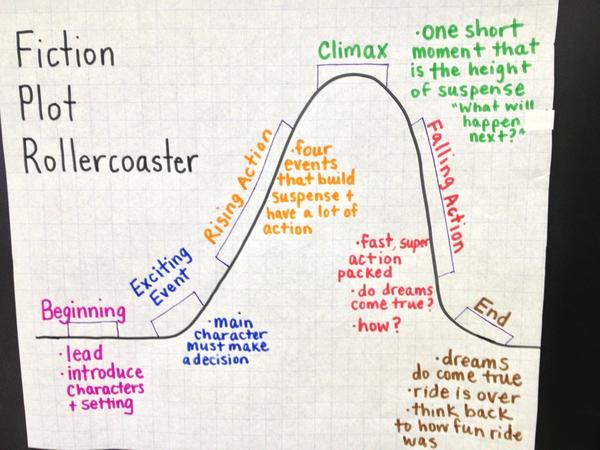 Fiction
Plot
Rollercoaster
Beginning
·lead
·introduce
Characters
+ setting
Exciting
Event
·main
character
must make
a decision
Rising Action
·four
events
that build
suspense +
have a lot of
action
Climax
·one short
moment that
is the height
of suspense
"What will
happen
next?"
Falling Action
·fast, super
action
packed
·do dreams
come true?
·how?
End
·dreams
do come true
·ride is over
·think back
to how fun ride
was